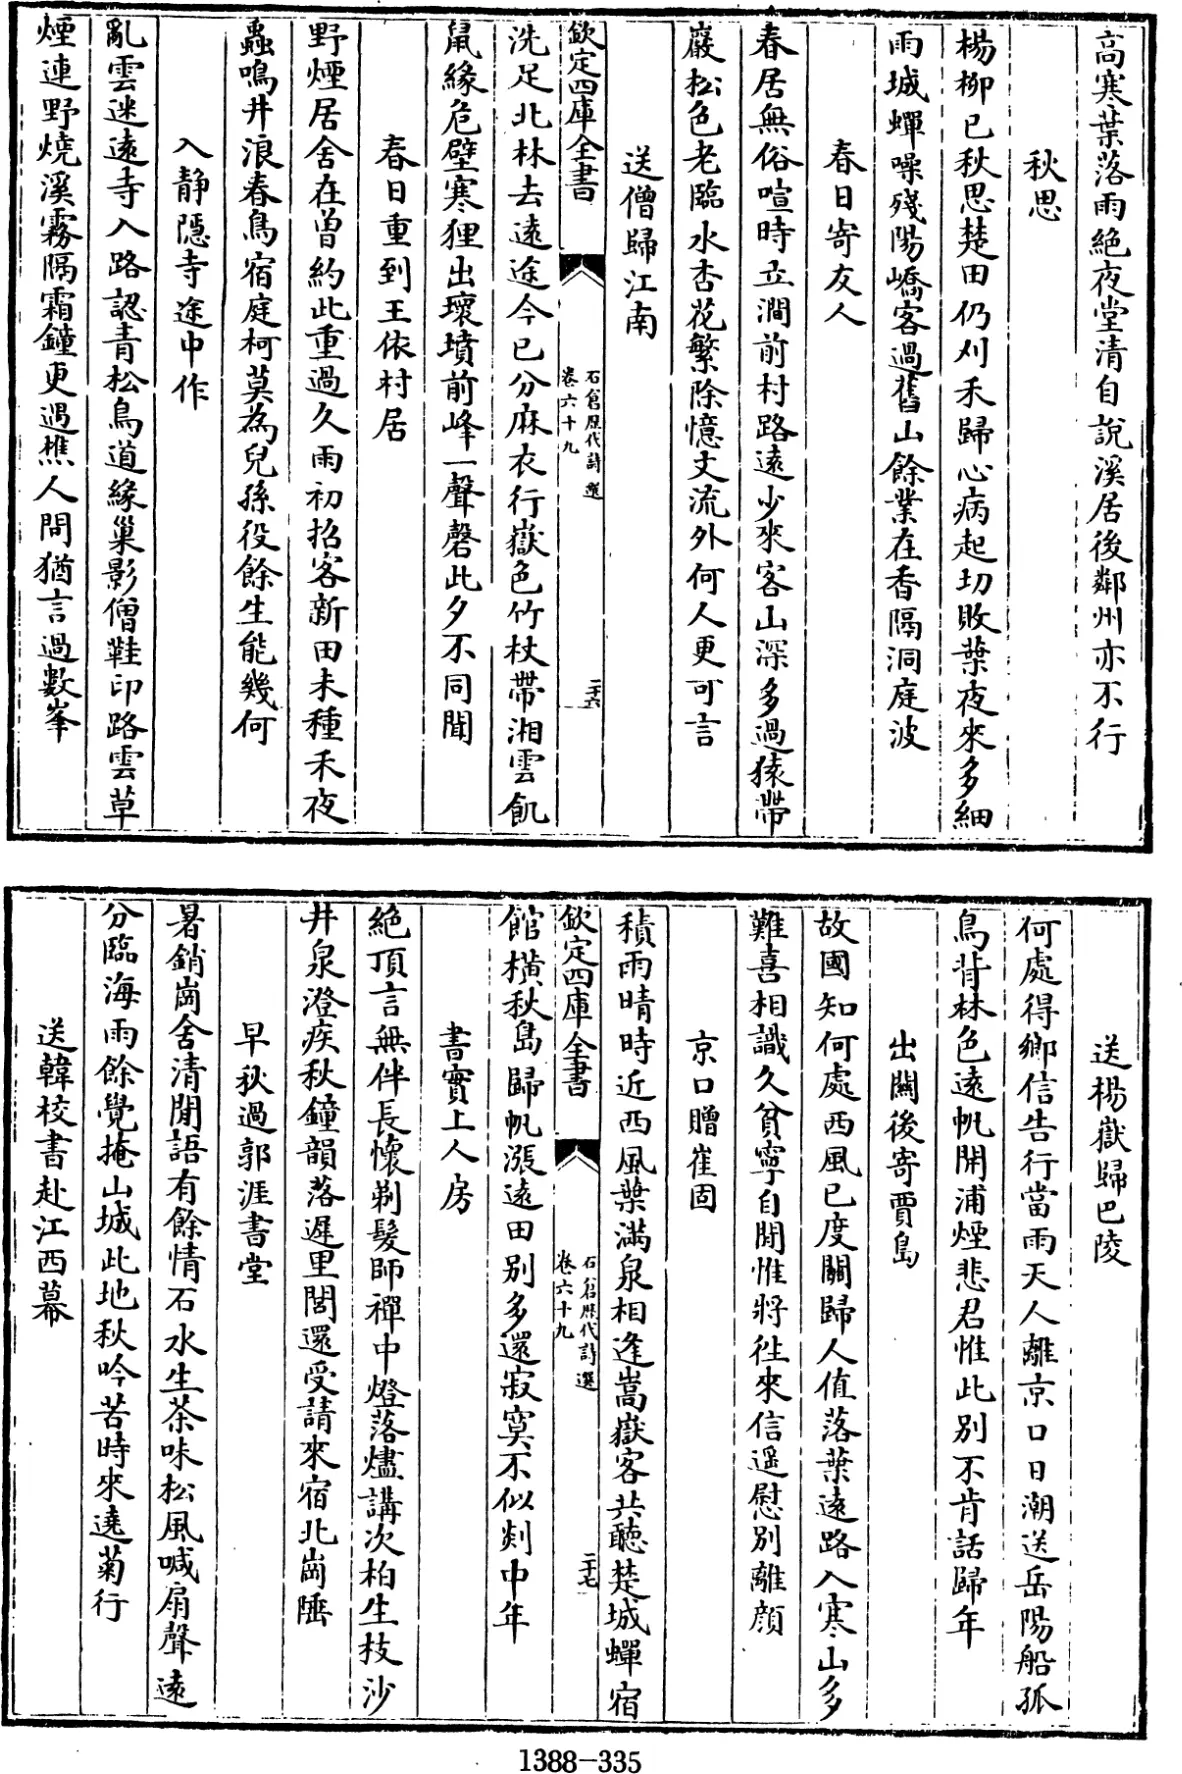 高寒葉落雨絶夜堂清自說溪居後鄰州亦不行
秋思
楊柳已秋思楚田仍刈禾歸心病起切敗葉夜來多細
雨城蟬噪殘陽嶠客過舊山餘業在杳隔洞庭波
春日寄友人
春居無俗喧時立澗前村路遠少來客山深多過猿帶
巖松色老臨水杏花繁除憶丈流外何人更可言
送僧歸江南
欽定四庫全書
石倉歷代詩選
卷六十九
二十六
洗足北林去遠途今已分麻衣行嶽色竹杖帶湘雲飢
鼠緣危壁寒狸出壞墳前峰一聲磬此夕不同聞
春日重到王依村居
野煙居舍在曽約此重過久雨初招客新田未種禾夜
蟲鳴井浪春鳥宿庭柯莫為兒孫役餘生能幾何
入靜隱寺途中作
亂雲迷遠寺入路認青松鳥道緣巢影僧鞋印路雲草
煙連野燒溪霧隔霜鐘更遇樵人問猶言過數峯
送楊嶽歸巴陵
何處得鄉信告行當雨天人離京口日潮送岳陽船孤
鳥背林色遠帆開浦煙悲君惟此別不肯話歸年
出關後寄賈島
故國知何處西風已度關歸人值落葉遠路入寒山多
難喜相識久貧寧自閒惟將徃來信遥慰別離顔
京口贈崔固
積雨晴時近西風葉滿泉相逢嵩嶽客共聽楚城蟬宿
欽定四庫全書
石倉歷代詩選
卷六十九
二十七
館橫秋島歸帆漲遠田別多還寂寞不似剡中年
書實上人房
絶頂言無伴長懷剃髮師禪中燈落燼講次柏生枝沙
井泉澄疾秋鐘韻落遲里閭還受請來宿北崗陲
早秋過郭涯書堂
暑銷崗舍清閒語有餘情石水生茶味松風喊扇聲遠
分臨海雨餘覺掩山城此地秋吟苦時來遶菊行
送韓校書赴江西幕
1388-335